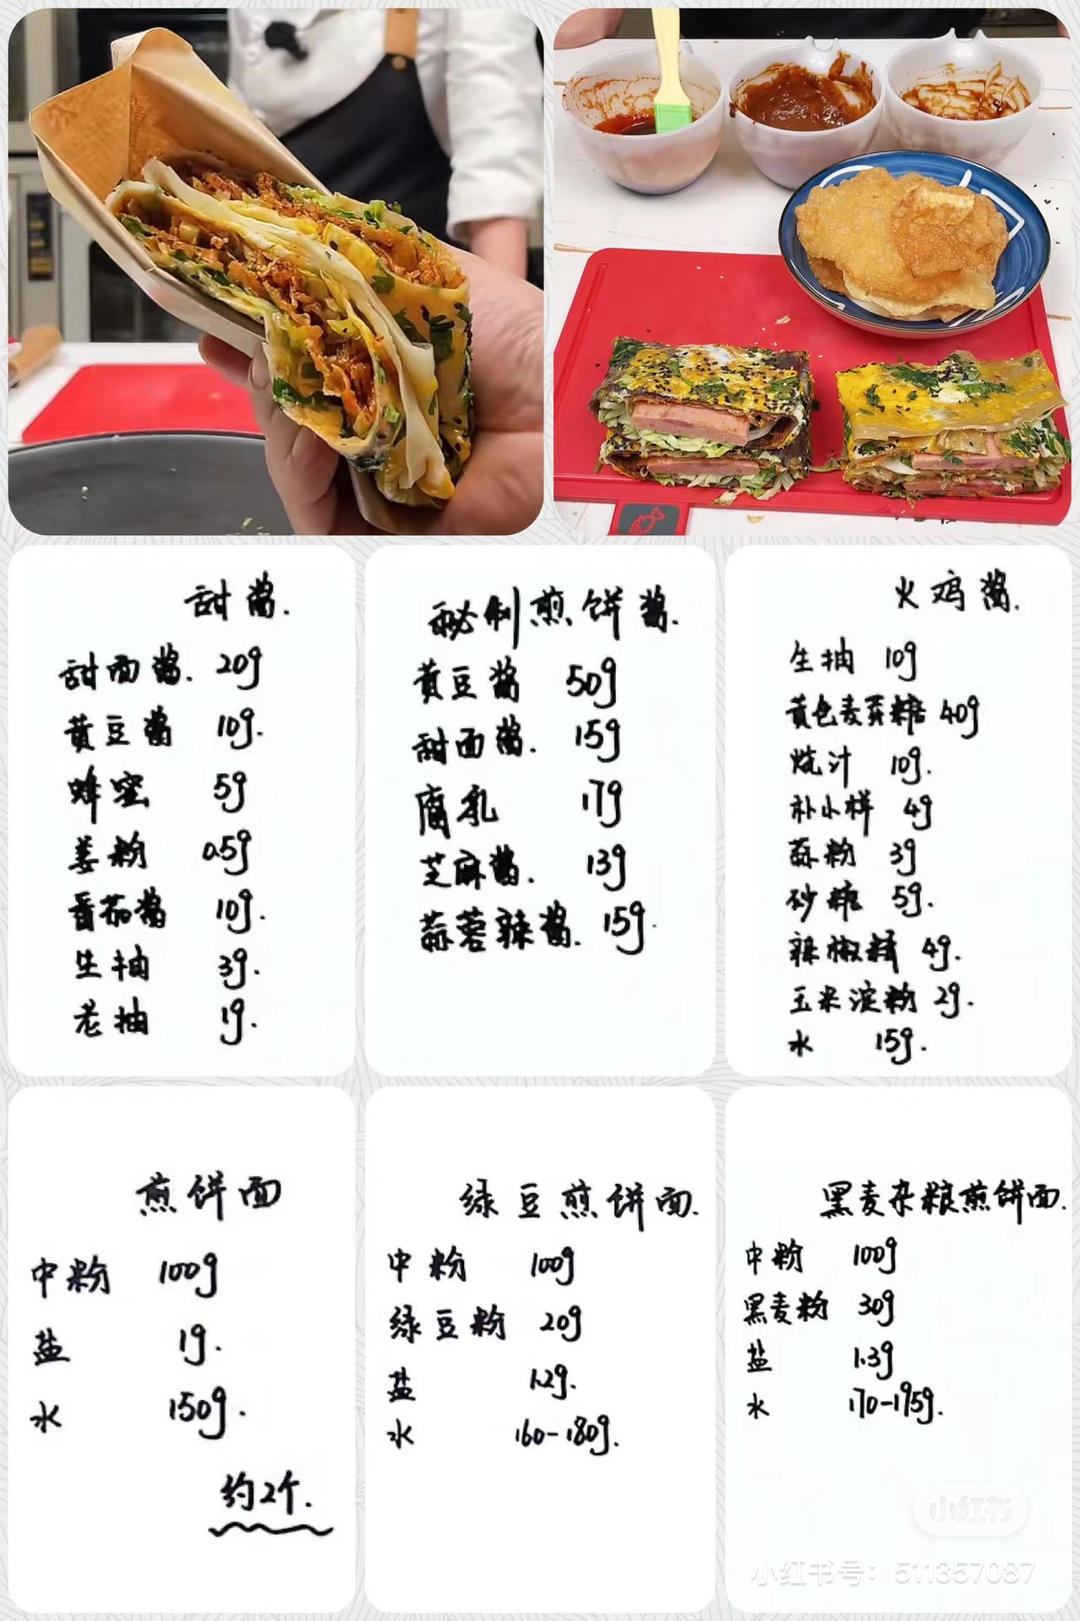 甜酱.
甜面酱. 20g
黄豆酱 10g.
蜂蜜 5g
姜粉 0.5g
番茄酱 10g.
生抽 3g.
老抽 1g.
秘制煎饼酱.
黄豆酱 50g
甜面酱. 15g
腐乳 17g
芝麻酱. 13g
蒜蓉辣酱. 15g.
火鸡酱.
生抽 10g
黄色麦芽糖 40g
烧汁 10g.
朴小样 4g
蒜粉 3g
砂糖 5g.
辣椒精 4g.
玉米淀粉 2g.
水 15g.
煎饼面
中粉 100g
盐 1g.
水 150g.
约2个.
绿豆煎饼面.
中粉 100g
绿豆粉 20g
盐 1.2g.
水 160-180g.
黑麦杂粮煎饼面.
中粉 100g
黑麦粉 30g
盐 1.3g
水 170-195g.
小红书
小红书号：511357087